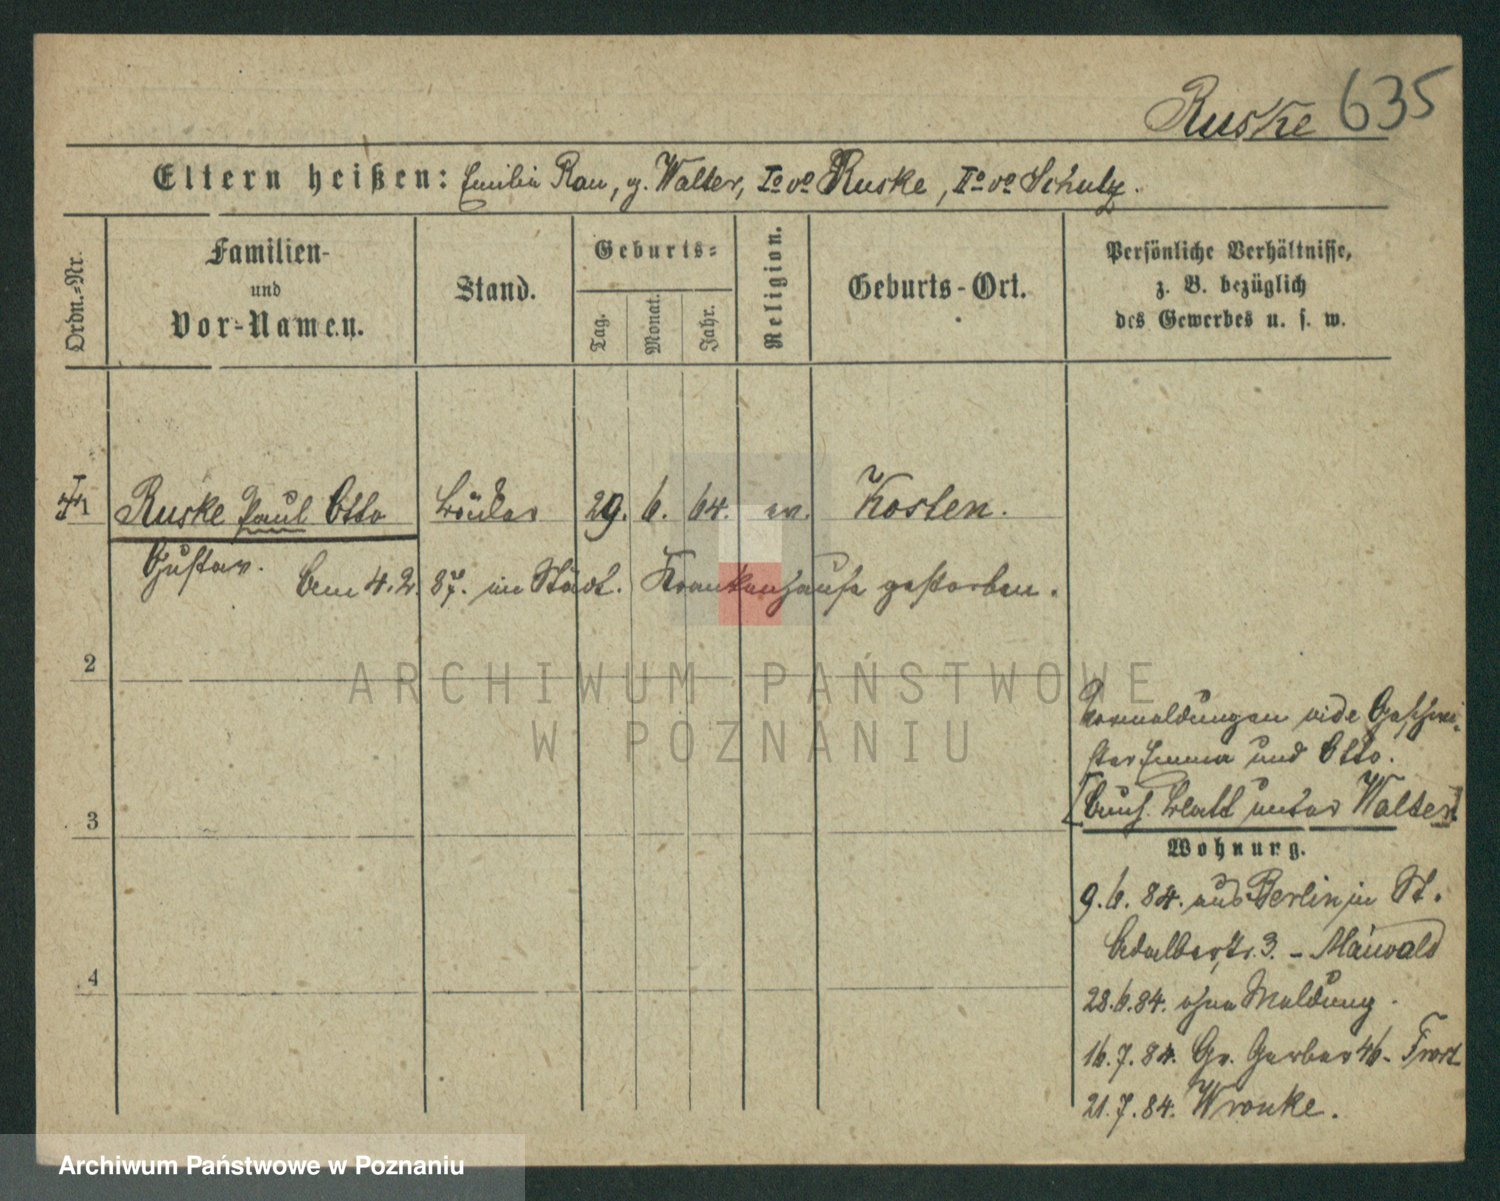 Ruske 635
Eltern heißen: Emilie Rau, g. Walter, Io vo Ruske, IIo vo Schulz.
Ordn.-Nr.
Familien-
und
Vor-Namen.
Stand.
Geburts-
Tag.
Monat.
Jahr.
Religion.
Geburts-Ort.
Persönliche Verhältnisse,
z. B. bezüglich
des Gewerbes u. s. w.
1 Ruske Paul Otto 29. 6. 64. ev. Kosten.
Gustav. Am 4.2. 87. im Städt. Krankenhause gestorben.
2
ARCHIWUM PAŃSTWOWE
W POZNANIU
Vormeldungen vide Geschwi-
ster Emma und Otto.
[Auch Blatt unter Walter]
3
Wohnung.
9.6.84. aus Berlin in St.
Adalbertstr. 3. - Maiwald
4
28.6.84. ohne Meldung.
16.7.84. Gr. Gerber 46-
21.7.84. Wronke.
Archiwum Państwowe w Poznaniu